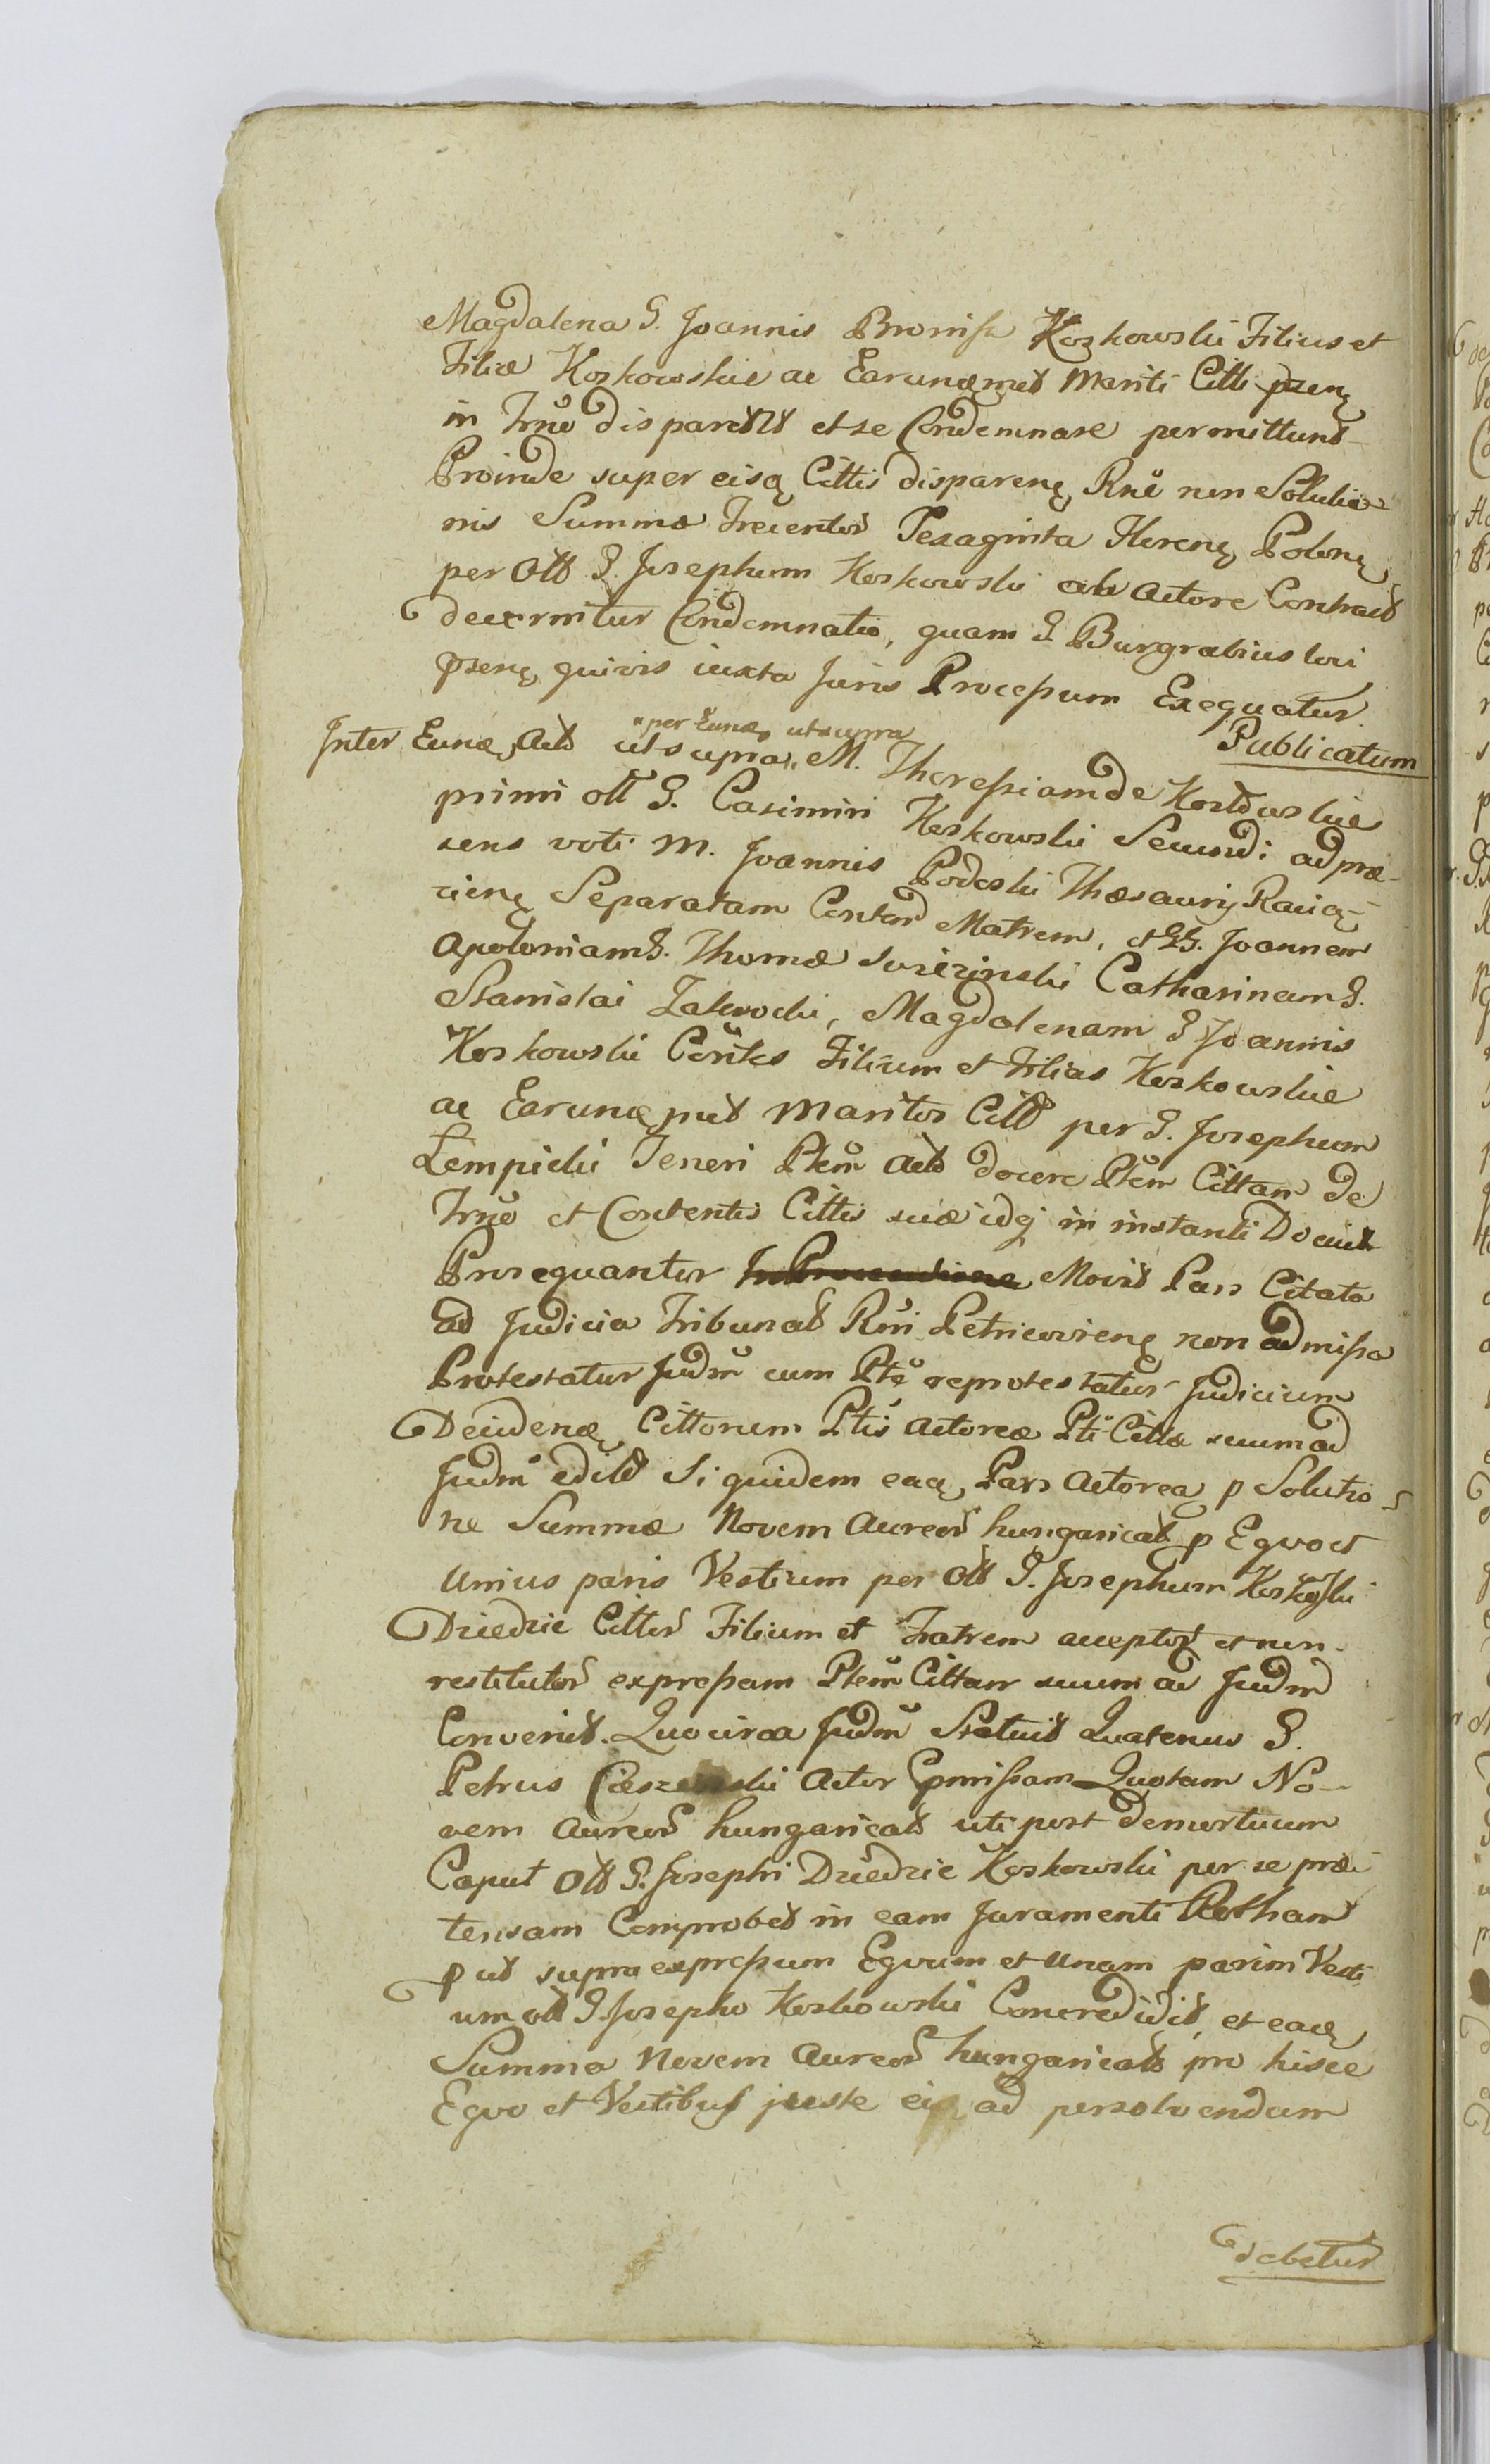 Magdalena G. Joannis Bronisz Koskowski Filius et
Filiæ Koskowskie ac Earundemet Mariti Citti pzen
in Trno disparent et se Condemnare permittunt
Proinde super eisq Cittis disparen Rne non Solutio
nis Summæ Trecentor Sexaginta Floren Polon
per Olt G. Josephum Koskowski ab Actore Contract
decernitur Condemnatio, quam G Burgrabius loci
pzen quivis iuxta Juris Processum Exequatur.
Publicatum
Inter Eund Act ut supra "per Eund ut supra M. Theressiam de
primi olt G. Casimiri Koskowski Secundi ad præ-
sens voti M. Joannis Podoski Thesaurij Racią-
zien Separatam Contor Matrem, et GG. Joannem
Apoloniam G. Thomæ Catharinam G.
Stanislai Zakrocki, Magdalenam G Joannis
Koskowski Contes Filium et Filias Koskowskie
ac Earundemet Maritos Citt per G. Josephum
Lempicki Teneri Ptem Act docere Ptem Cittam de
Trno et Contentis Cittis suæ idq in instanti Docuit
Prosequantur Movit Pars Citata
ad Judicia Tribunal Rni Petricovien non admissa
Protestatur Judm cum Pte reprotestatur Judicium
Decidend Cittonem Ptis Actoreæ Pti Cittæ suum ad
Judm edit Si quidem eaq Pars Actorea p Solutio
ne Summæ Novem Aureor hungarical p Equo et
Unius paris Vestium per Olt G. Josephum Koskoski
Driedzic Cittor Filium et Fratrem acceptor et non
restitutor expressam Ptem Cittam suum ad Judm
Convenit. Quocirca Judm Statuit Quatenus G.
Petrus Actor Præmissam Quotam No-
vem Aureor hungarical uti post demortuum
Caput Olt G. Josephi Driedzic Koskowski per se præ
tensam Comprobet in eam Juramenti Rotham
p ut supra expressum Equum et Unam parim Vesti
um olt G Josepho Koskowski Concredidit, et eaq
Summa Novem Aureor hungarical pro hisce
Equo et Vestibus juste ei ad persolvendum
debetur